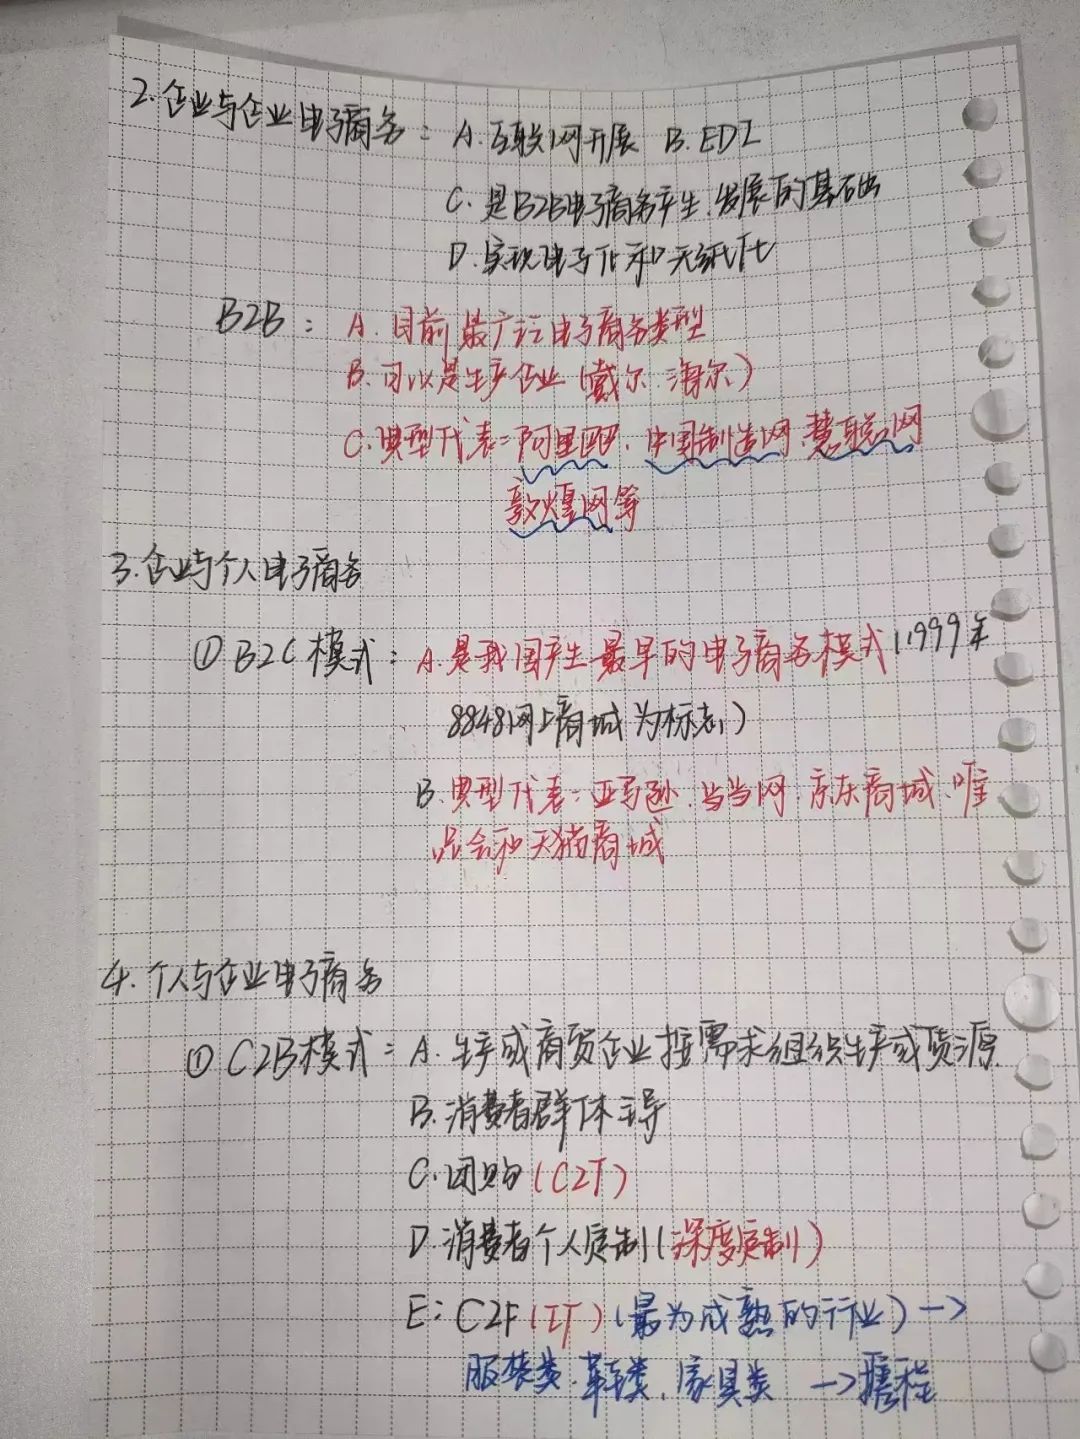 2.企业与企业电子商务：A.互联网开展 B.EDI
C.是B2B电子商务产生、发展的基础
D.实现电子化和无纸化
B2B：A.目前最广泛电子商务类型
B.可以是生产企业（戴尔、海尔）
C.典型代表：阿里巴巴、中国制造网、慧聪网
敦煌网等
3.企业与个人电子商务
①B2C模式：A.是我国产生最早的电子商务模式（1999年
8848网上商城为标志）
B.典型代表：亚马逊、当当网、京东商城、唯
品会和天猫商城
4.个人与企业电子商务
①C2B模式：A.生产或商贸企业按需求组织生产或货源
B.消费者群体主导
C.团购（C2T）
D.消费者个人定制（深度定制）
E：C2F（IT）（最为成熟的行业）→
服装类、革鞋类、家具类→携程